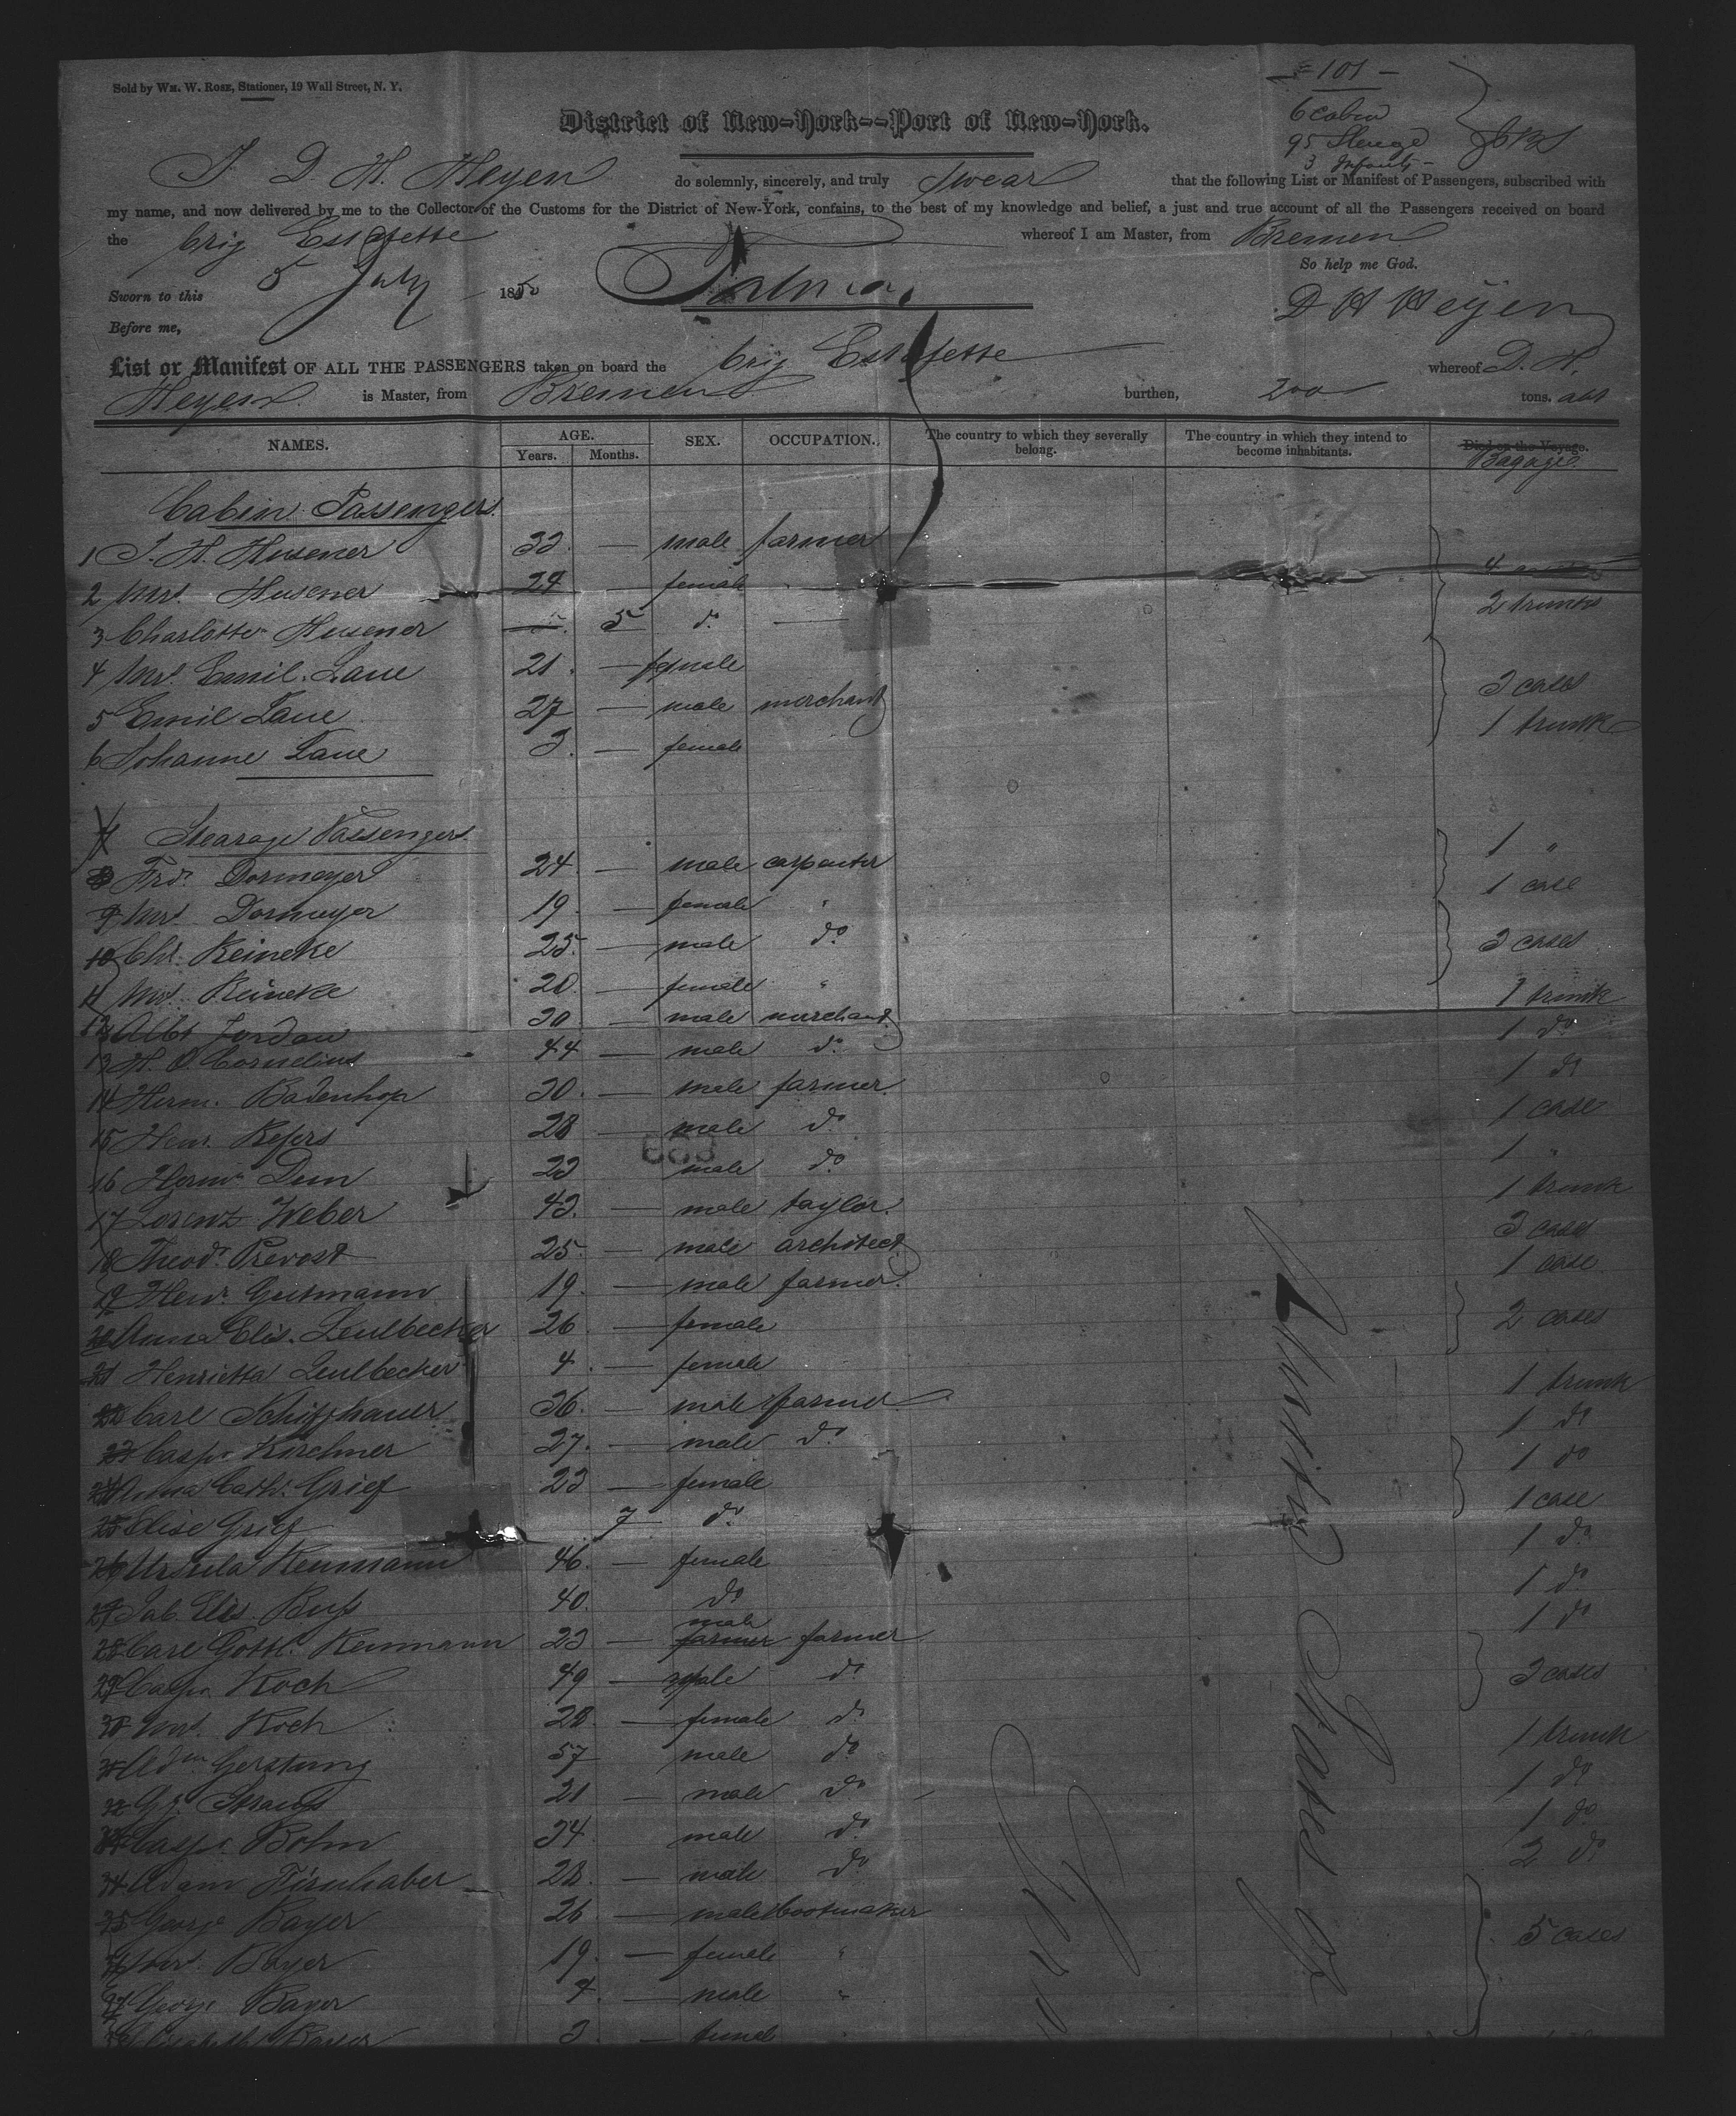 Sold by WM. W. ROSE, Stationer, 19 Wall Street, N. Y.
101
6 cabin
95 Sterage
3 Infants
District of New-York--Port of New-York.
I D. H. Heyen do solemnly, sincerely, and truly swear that the following List or Manifest of Passengers, subscribed with
my name, and now delivered by me to the Collector of the Customs for the District of New-York, contains, to the best of my knowledge and belief, a just and true account of all the Passengers received on board
the brig Estafette whereof I am Master, from Bremen
So help me God.
Sworn to this 5 July 1850
D H Heyen
Before me,
List or Manifest OF ALL THE PASSENGERS taken on board the brig Estafette whereof D. H.
Heyen is Master, from Bremen burthen, 200 tons.
NAMES. AGE. Years. Months. SEX. OCCUPATION. The country to which they severally belong. The country in which they intend to become inhabitants. Died on the Voyage. Bagage.
Cabin Passengers
1 J. H. Husener 33 — male farmer
2 Mrs. Husener 24 — female
3 Charlotte Husener 5 do 2 trunks
4 Mrs. Emil Laue 21 — female
5 Emil Laue 27 — male merchant 3 cases
6 Johanne Laue 3 — female 1 trunk
Stearage Passengers
8 Frd. Dormeyer 24 — male carpenter 1 "
9 Mrs. Dormeyer 19 — female " 1 case
10 Chr. Reineke 25 — male do 3 cases
11 Mrs. Reineke 20 — female "
12 Albt Jordan 30 — male merchant 1 trunk
13 H. O. Cornelius 44 — male do 1 do
14 Herm. Badenhop 30 — male farmer 1 do
15 Henr. Kefers 28 — male do 1 case
16 Herm. Dem 23 male do 1 "
17 Lorenz Weber 43 — male taylor 1 trunk
18 Theodr Prevost 25 — male architect 3 cases
19 Henr. Gutmann 19 — male farmer 1 case
20 Anna Elis. Leulbecker 26 — female 2 cases
21 Henrietta Leulbecker 4 — female
22 Carl Schitzhauer 36 — male farmer 1 trunk
23 Caspr. Kirchner 27 — male do 1 do
24 Anna Cath. Grief 23 — female 1 do
25 Elise Grief 7 do 1 case
26 Ursula Reumann 46 — female 1 do
27 Sab. Elis. Russ 40 do 1 do
28 Carl Gottl. Reumann 23 — male farmer farmer 1 do
29 Caspr Koch 49 — male do 3 cases
30 Mrs. Koch 28 — female do
31 Adm Gerstung 57 male do 1 trunk
32 Gg. Strauss 21 — male do 1 do
33 Caspr. Bohm 34 male do 1 do
34 Adam Firnhaber 28 — male do 2 do
35 George Bayer 26 — male bootmaker
36 Mrs. Bayer 19 — female " 5 cases
37 George Bayer 4 — male "
38 Elisabeth Bayer 3 — femal
United States of
683